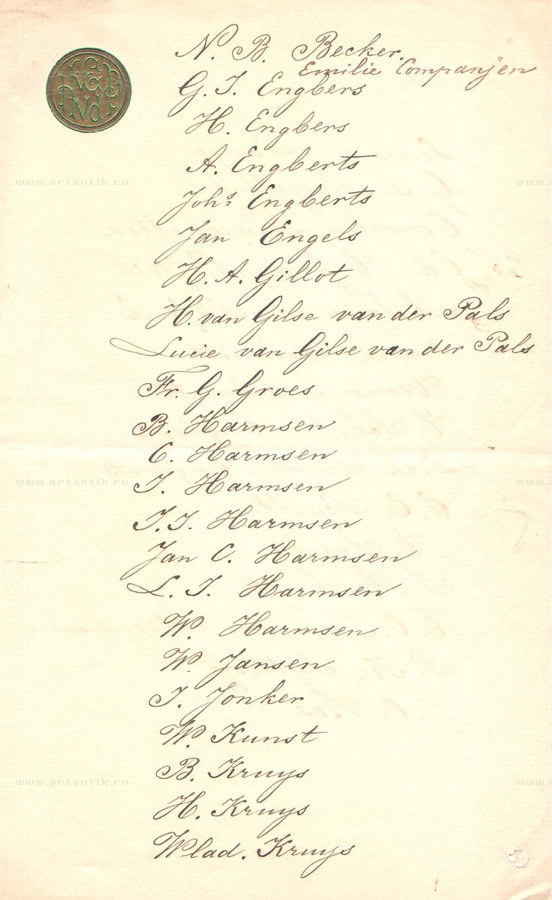 N. B. Becker.
Emilie Companjen
G. J. Engbers
H. Engbers
A. Engberts
Johs. Engberts
Jan Engels
H. A. Gillot
H. van Gilse van der Pals
Lucie van Gilse van der Pals
Fr. G. Groes
B. Harmsen
C. Harmsen
J. Harmsen
J. J. Harmsen
Jan C. Harmsen
L. J. Harmsen
W. Harmsen
W. Jansen
J. Jonker
W. Kunst
B. Kruys
H. Kruys
Wlad. Kruys
www.artantik.ru